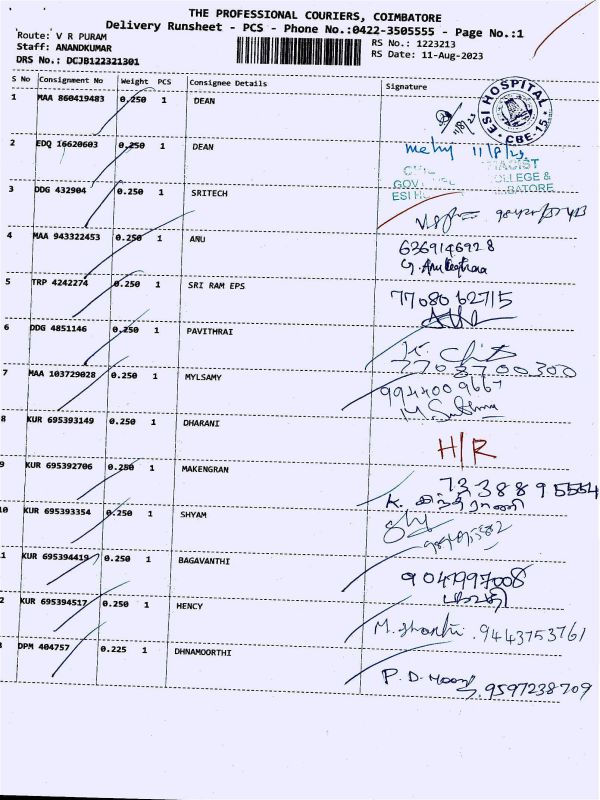 THE PROFESSIONAL COURIERS, COIMBATORE
Delivery Runsheet - PCS - Phone No.:0422-3505555 - Page No.:1
Route: V R PURAM
RS No.: 1223213
Staff: ANANDKUMAR
RS Date: 11-Aug-2023
DRS No.: DCJB122321301
S No Consignment No Weight PCS Consignee Details Signature
1 MAA 860419483 0.250 1 DEAN
11/8/23
ESI HOSPITAL
CBE-15.
2 EDQ 16620603 0.250 1 DEAN
11/8/23
COLLEGE &
ESI
3 DDG 432904 0.250 1 SRITECH
4 MAA 943322453 0.250 1 ANU
6369146928
5 TRP 4242274 0.250 1 SRI RAM EPS
7708062715
6 DDG 4851146 0.250 1 PAVITHRAI
7708700300
7 MAA 103729028 0.250 1 MYLSAMY
9944009667
8 KUR 695393149 0.250 1 DHARANI
H/R
9 KUR 695392706 0.250 1 MAKENGRAN
7338895554
K.
10 KUR 695393354 0.250 1 SHYAM
1 KUR 695394419 0.250 1 BAGAVANTHI
9041997008
2 KUR 695394517 0.250 1 HENCY
M. Shanthi . 9443753761
3 DPM 404757 0.225 1 DHNAMOORTHI
P. D. Moorthy . 9597238709